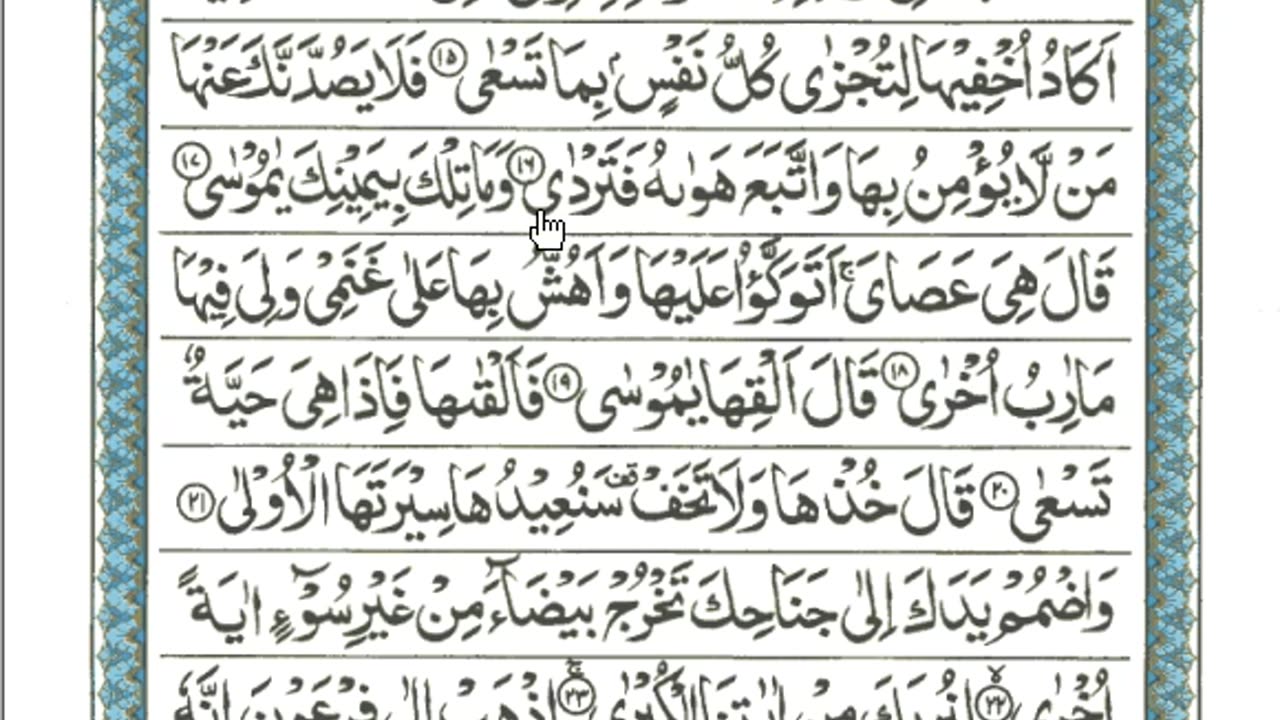 اَكَادُ اُخْفِيْهَا لِتُجْزٰى كُلُّ نَفْسٍۭ بِمَا تَسْعٰى ١٥ فَلَا يَصُدَّنَّكَ عَنْهَا
مَنْ لَّا يُؤْمِنُ بِهَا وَاتَّبَعَ هَوٰىهُ فَتَرْدٰى ١٦ وَمَا تِلْكَ بِيَمِيْنِكَ يٰمُوْسٰى ١٧
قَالَ هِىَ عَصَاىَ ۚ اَتَوَكَّؤُا عَلَيْهَا وَاَهُشُّ بِهَا عَلٰى غَنَمِىْ وَلِىَ فِيْهَا
مَاٰرِبُ اُخْرٰى ١٨ قَالَ اَلْقِهَا يٰمُوْسٰى ١٩ فَاَلْقٰىهَا فَاِذَا هِىَ حَيَّةٌ
تَسْعٰى ٢٠ قَالَ خُذْهَا وَلَا تَخَفْ ۥقف سَنُعِيْدُهَا سِيْرَتَهَا الْاُوْلٰى ٢١
وَاضْمُمْ يَدَكَ اِلٰى جَنَاحِكَ تَخْرُجْ بَيْضَآءَ مِنْ غَيْرِ سُوْٓءٍ اٰيَةً
اُخْرٰى ٢٢ لِنُرِيَكَ مِنْ اٰيٰتِنَا الْكُبْرٰى ٢٣ اِذْهَبْ اِلٰى فِرْعَوْنَ اِنَّهٗ